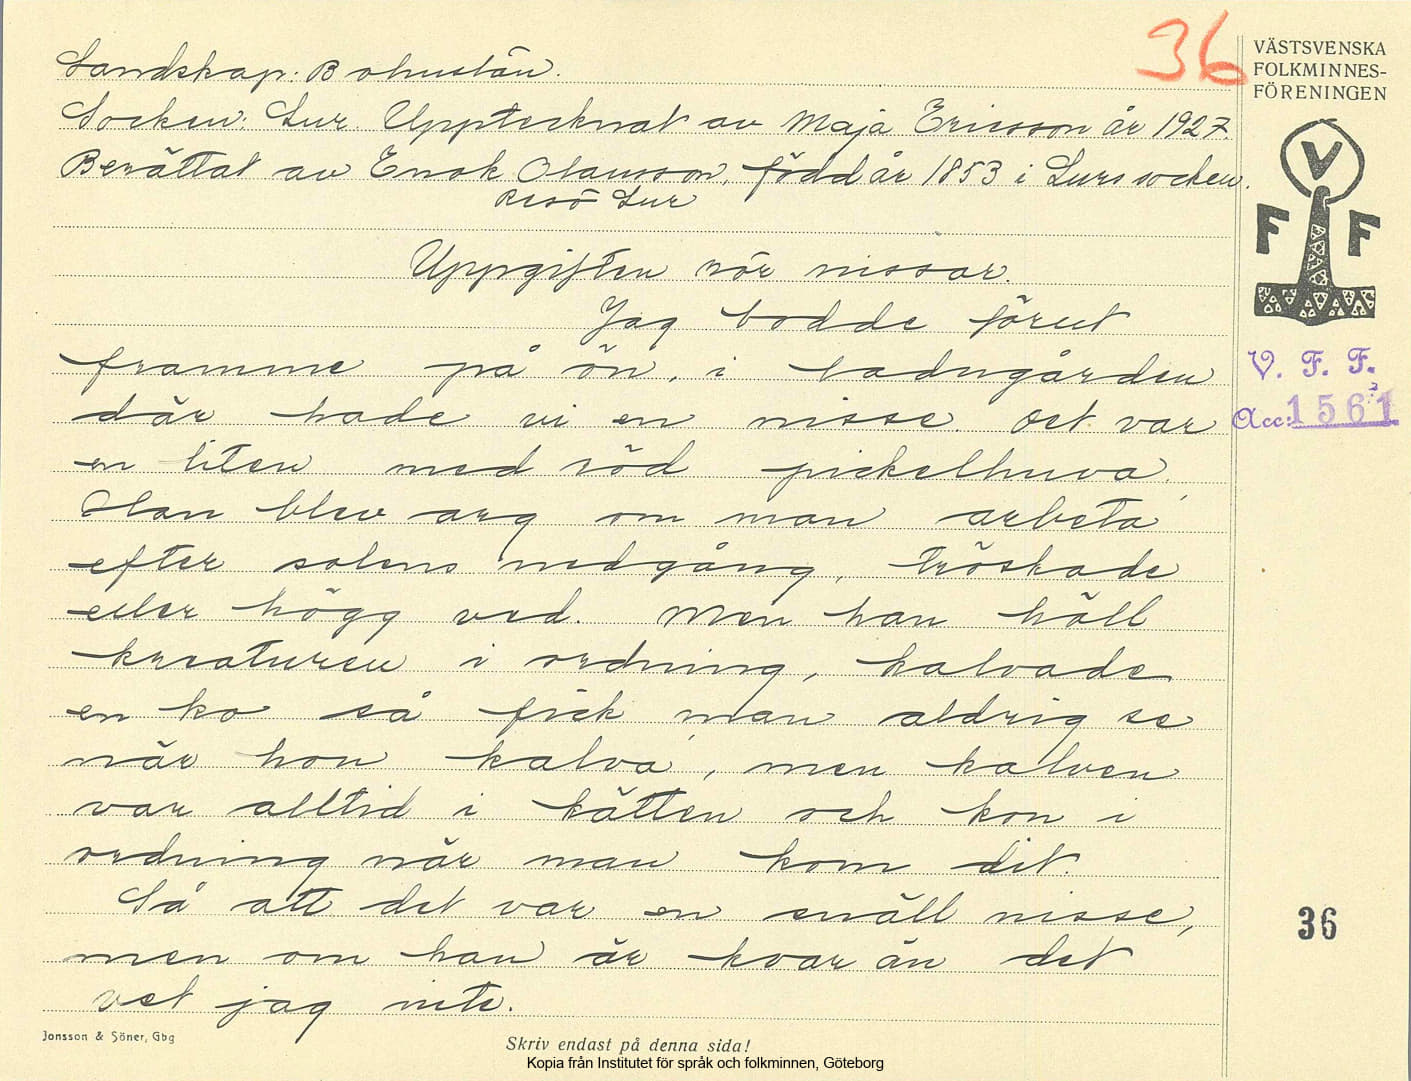 36
VÄSTSVENSKA
FOLKMINNES-
FÖRENINGEN
V
F F
V. F. F.
Acc: 1561
Landskap: Bohuslän.
Socken: Lur. Upptecknat av Maja Ericsson år 1927.
Berättat av Enok Olausson, född år 1853 i Lurs socken.
Resö Lur
Uppgiften rör nissar.
Jag bodde förut
framme på ön, i ladugården
där hade vi en nisse. Det var
en liten med röd pickelhuva.
Han blev arg om man arbeta
efter solens nedgång, tröskade
eller högg ved. Men han höll
kreaturen i ordning, kalvade
en ko så fick man aldrig se
när hon kalva, men kalven
var alltid i kätten och kon i
ordning när man kom dit.
Så att det var en snäll nisse,
men om han är kvar än det
vet jag inte.
36
Jonsson & Söner, Gbg
Skriv endast på denna sida!
Kopia från Institutet för språk och folkminnen, Göteborg